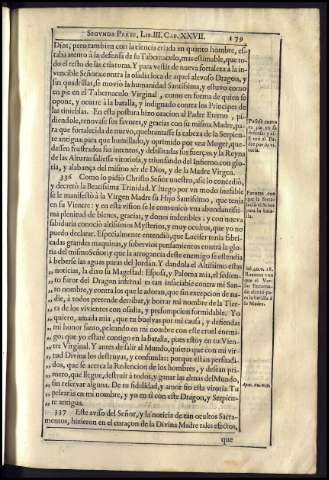 SEGVNDA PARTE, LIB. III. CAP. XXVII. 179
Dios, pero tambien con la ciencia criada en quinto hombre, es-
taba atento à la defensa de su Tabernaculo, mas estimable, que to-
do el resto de las criaturas. Y para vestir de nueva fortaleza à la in-
vencible Señora contra la osadia loca de aquel alevoso Dragon, y
sus quadrillas, se movio la humanidad Santissima, y estuvo como
en pie en el Tabernaculo Virginal, como en forma de quien se
opone, y ocurre à la batalla, y indignado contra los Principes de
las tinieblas. En esta postura hizo oracion al Padre Eterno, pi-
diendole, renovasse sus favores, y gracias con su misma Madre, pa-
ra que fortalecida de nuevo, quebrantasse la cabeza de la Serpien-
te antigua para que humillado, y oprimido por vna Muger, que-
dassen frustrados sus intentos, y debilitadas sus fuerças, y la Reyna
de las Alturas saliesse vitoriosa, y triunfando del infierno, con glo-
ria, y alabança del mismo sèr de Dios, y de la Madre Virgen.
336 Como lo pidiò Christo Señor nuestro, assi lo concediò,
y decretò la Beatissima Trinidad. Y luego por vn modo inefable
se le manifestò à la Virgen Madre su Hijo Santissimo, que tenia
en su Vientre: y en esta vision se le comunicò vna abundantissi-
ma plenitud de bienes, gracias, y dones indecibles: y con nueva
sabiduria conociò altissimos Mysterios, y muy ocultos, que yo no
puedo declarar. Especialmente entendiò, que Lucifer tenia fabri-
cadas grandes maquinas, y sobervios pensamientos contra la glo-
ria del mismo Señor: y que la arrogancia de este enemigo se estendia
à beberse las aguas puras del Jordan. Y dandola el Altissimo estas
,, noticias, la dixo su Magestad: Esposa, y Paloma mia, el sedien-
,, to furor del Dragon infernal es tan insaciable contra mi San-
,, to nombre, y contra los que le adoran, que sin excepcion de na-
,, die, à todos pretende derribar, y borrar mi nombre de la Tier-
,, ra de los vivientes con osadia, y presumpcion formidable. Yo
,, quiero, amada mia, que tu buelvas por mi causa, y defiendas
,, mi honor santo, peleando en mi nombre con este cruel enemi-
,, go: que yo estarè contigo en la batalla, pues estoy en tu Vien-
,, tre Virginal. Y antes de salir al Mundo, quiero que con mi vir-
,, tud Divina los destruyas, y confundas: porque estàn persuadi-
,, dos, que se acerca la Redencion de los hombres, y desean pri-
,, mero, que llegue, destruir à todos, y ganar las almas del Mundo,
,, sin reservar alguna. De tu fidelidad, y amor fio esta vitoria. Tu
,, pelearàs en mi nombre, y yo en ti con este Dragon, y Serpien-
,, te antigua.
337 Este aviso del Señor, y la noticia de tan ocultos Sacra-
mentos, hizieron en el coraçon de la Divina Madre tales efectos,
que